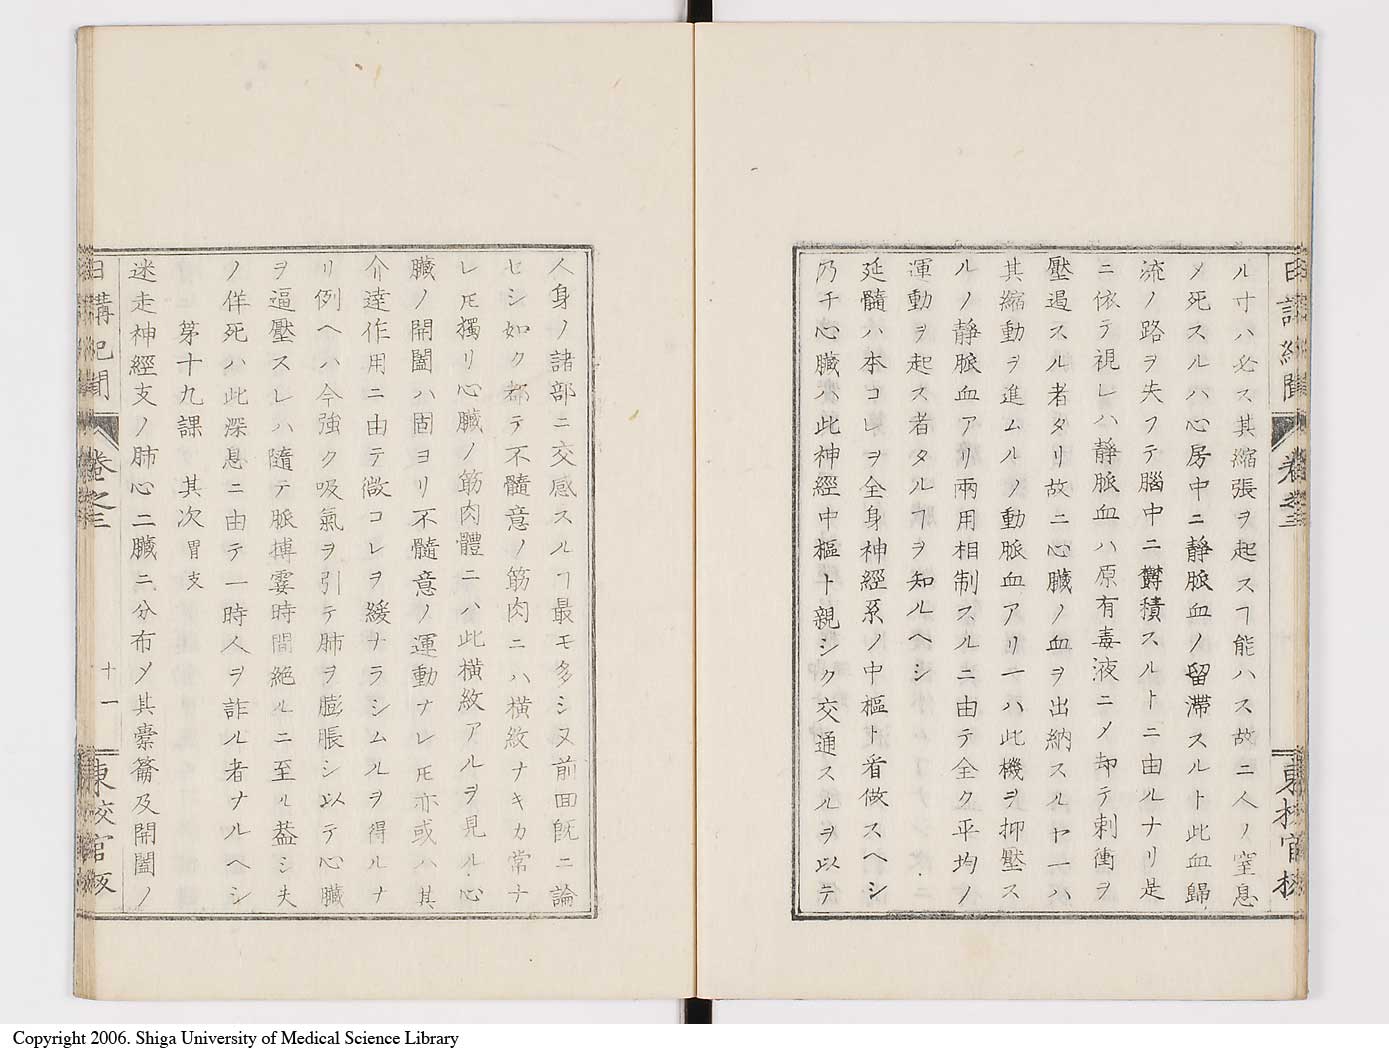 ル寸ハ必ス其縮張ヲ起スヿ能ハス故ニ人ノ窒息
ノ死スルハ心房中ニ靜脈血ノ留滯スルト此血歸
流ノ路ヲ失フテ腦中ニ欝積スルトニ由ルナリ是
ニ依テ視レハ靜脈血ハ原有毒液ニメ却テ刺衝ヲ
壓遏スル者タリ故ニ心臟ノ血ヲ出納スルヤ一ハ
其縮動ヲ進ムルノ動脈血アリ一ハ此機ヲ抑壓ス
ルノ靜脈血アリ兩用相制スルニ由テ全ク平均ノ
運動ヲ起ス者タルヿヲ知ルヘシ
延髓ハ本コレヲ全身神經系ノ中樞ト看做スヘシ
乃チ心臟ハ此神經中樞ト親シク交通スルヲ以テ
日講紀聞
卷之三
東校官板
人身ノ諸部ニ交感スルヿ最モ多シ又前面既ニ論
セシ如ク都テ不髓意ノ筋肉ニハ橫紋ナキカ常ナ
レ𪜈獨リ心臟ノ筋肉體ニハ此橫紋アルヲ見ル心
臟ノ開闔ハ固ヨリ不髓意ノ運動ナレ𪜈亦或ハ其
介達作用ニ由テ微コレヲ緩ナラシムルヲ得ルナ
リ例ヘハ今強ク吸氣ヲ引テ肺ヲ膨脹シ以テ心臟
ヲ逼壓スレハ隨テ脈搏霎時間絶ルニ至ル葢シ夫
ノ佯死ハ此深息ニ由テ一時人ヲ詐ル者ナルヘシ
第十九課 其次 胃支
迷走神經支ノ肺心二臟ニ分布メ其橐籥及開闔ノ
日講紀聞
卷之三
十一
東校官板
Copyright 2006. Shiga University of Medical Science Library